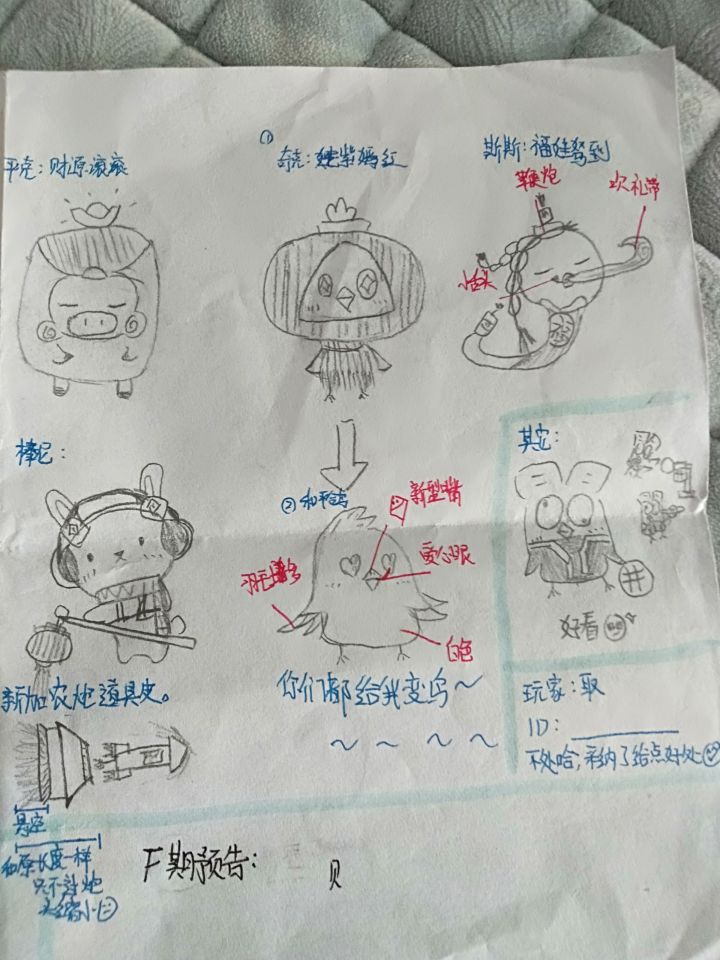 平克:财源滚滚
①
奈克:姹紫嫣红
斯斯:福娃驾到
鞭炮
欢礼带
小舌头
福
棒尼:
②和平鸽
新型嘴
爱心眼
白色
其它:
好看
新加农炮道具皮。
你们都给我变鸟~
~ ~ ~ ~
玩家:取
ID:
不处哈,采纳了给点好处
真空
和原长度一样
只不过炮
头缩小
下期预告:
贝